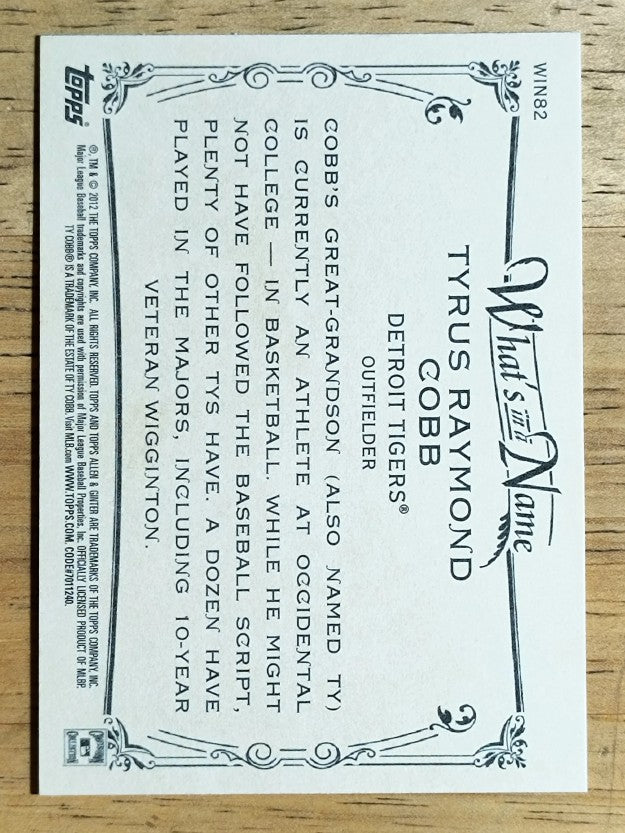 WIN82
What's in a Name
TYRUS RAYMOND
COBB
DETROIT TIGERS®
OUTFIELDER
COBB'S GREAT-GRANDSON (ALSO NAMED TY)
IS CURRENTLY AN ATHLETE AT OCCIDENTAL
COLLEGE — IN BASKETBALL. WHILE HE MIGHT
NOT HAVE FOLLOWED THE BASEBALL SCRIPT,
PLENTY OF OTHER TYS HAVE. A DOZEN HAVE
PLAYED IN THE MAJORS, INCLUDING 10-YEAR
VETERAN WIGGINTON.
Topps®
®, TM & © 2012 THE TOPPS COMPANY, INC. ALL RIGHTS RESERVED. TOPPS AND TOPPS ALLEN & GINTER ARE TRADEMARKS OF THE TOPPS COMPANY, INC.
Major League Baseball trademarks and copyrights are used with permission of Major League Baseball Properties, Inc. OFFICIALLY LICENSED PRODUCT OF MLBP.
TY COBB® IS A TRADEMARK OF THE ESTATE OF TY COBB. Visit MLB.com WWW.TOPPS.COM. CODE#7011240.
COOPERSTOWN
COLLECTION